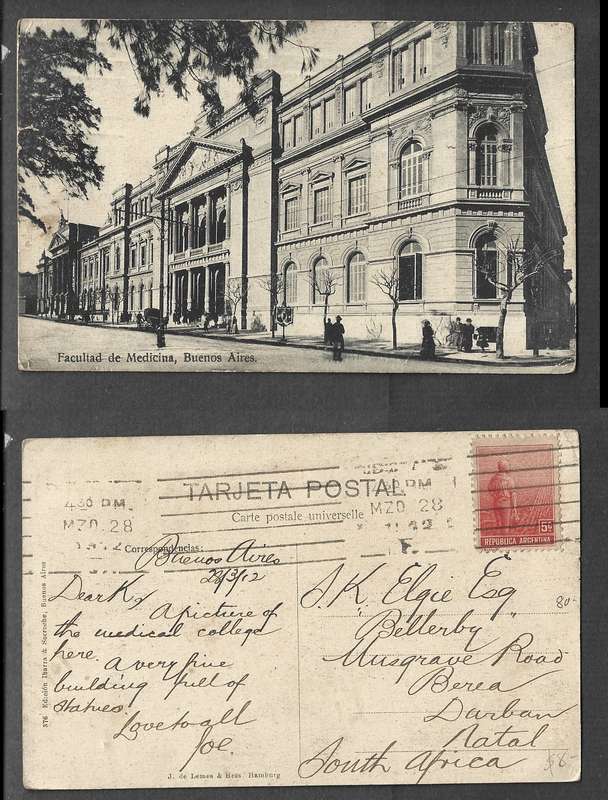 Facultad de Medicina, Buenos Aires.
TARJETA POSTAL
Carte postale universelle
Correspondencias:
4 30 PM
MZO 28
1912
PM
MZO 28
5c
REPUBLICA ARGENTINA
Buenos Aires
28/3/12
Dear K,
A picture of
the medical college
here. A very fine
building full of
statues.
Love to all
Joe.
S. K. Elgie Esq
"Bellerby"
Musgrave Road
Berea
Durban
Natal
South Africa
80-
576 Edición Ibarra & Secroche, Buenos Aires
J. de Lemos & Hess Hamburg